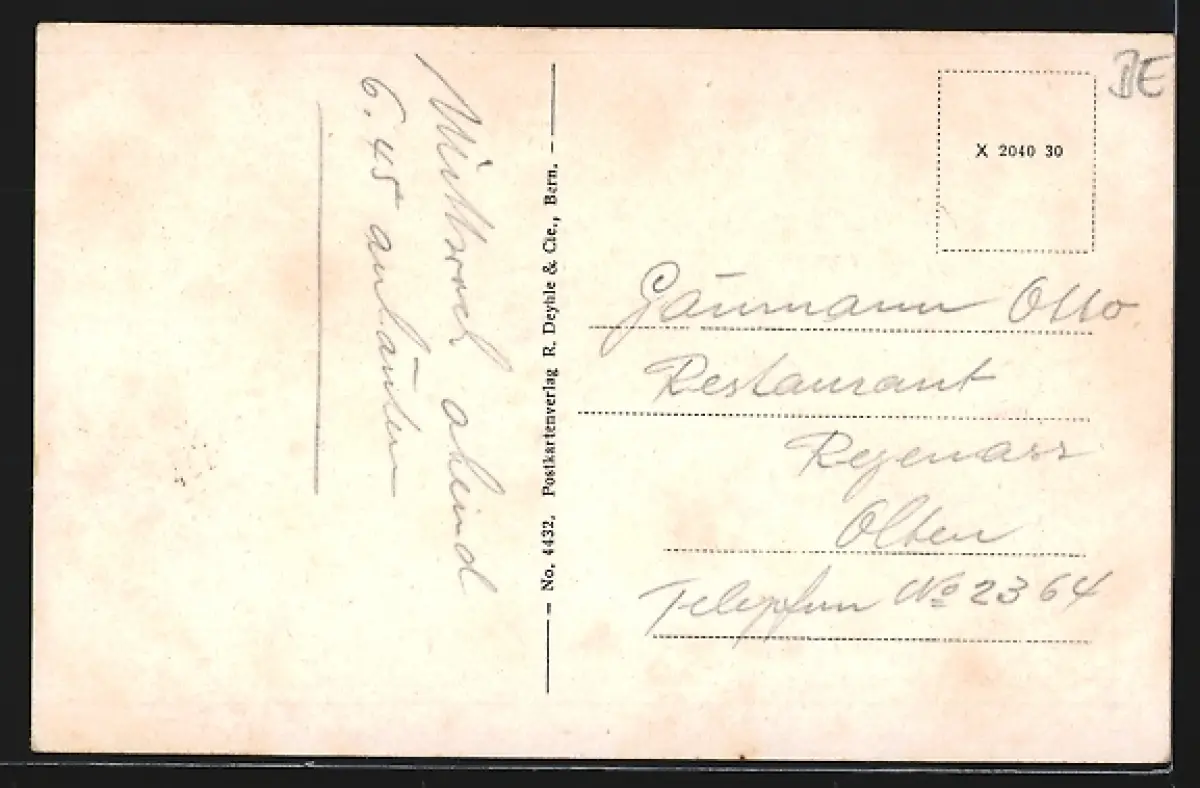 Mittwoch abend
6.45 anläuten
No. 4432. Postkartenverlag R. Deyhle & Cie., Bern.
BE
X 2040 30
Gäumann Otto
Restaurant
Regenass
Olten
Telephon No 2364